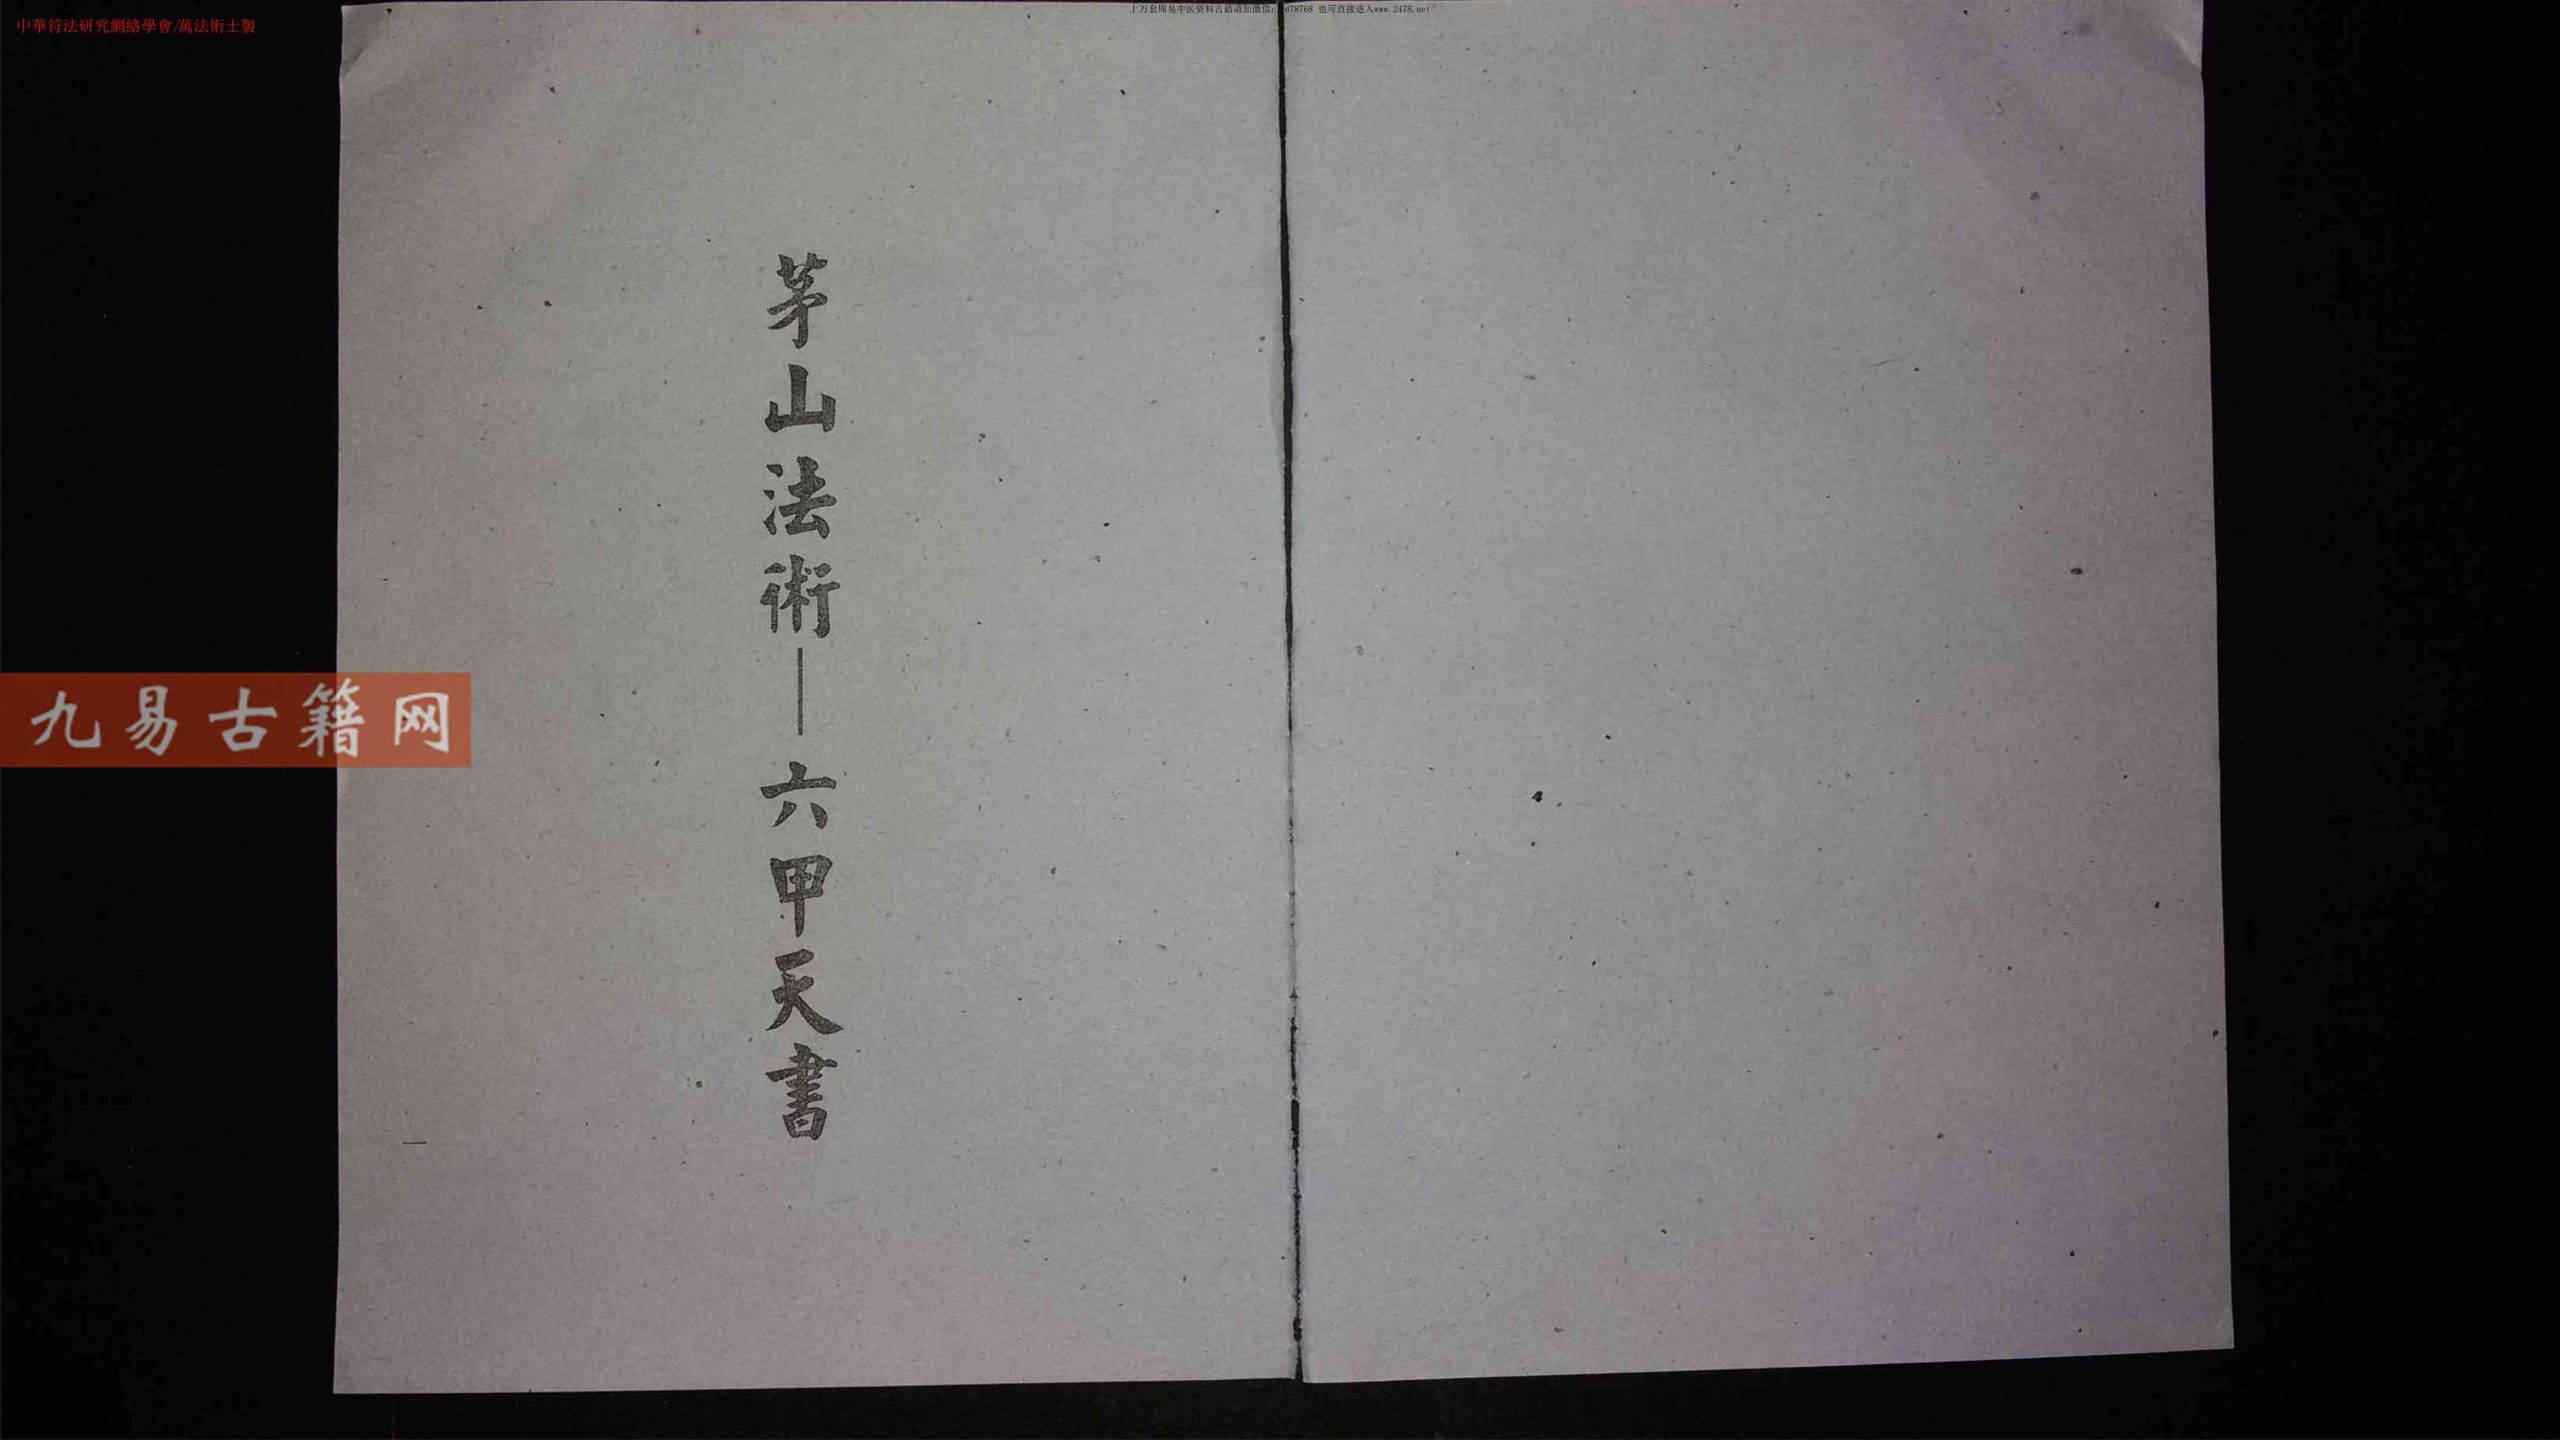 中華符法研究網絡學會/萬法術士製
上万套周易中医资料古籍请加微信:
d78768 也可直接进入www.2478.net
茅山法術—六甲天書
九易古籍网
一